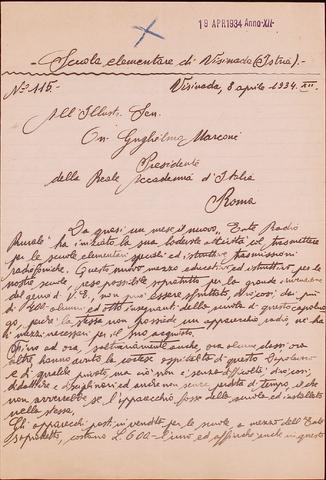 19 APR 1934 Anno XII
Scuola elementare di Visinada (Istria).-
N° 115.- Visinada, 8 aprile 1934. XII.
All'Illustr. Sen.
On. Guglielmo Marconi
Presidente
della Reale Accademia d'Italia
Roma
Da quasi un mese il nuovo "Ente Radio
Rurale" ha iniziato la sua lodevole attività col trasmettere
per le scuole elementari speciali ed istruttive trasmissioni
radiofoniche. Questo nuovo mezzo educativo ed istruttivo per le
nostre scuole, reso possibile soprattutto per la grande invenzione
del genio di V.E., non può essere sfruttato dai
di 400 alunni ed otto insegnanti della scuola di questo capoluo-
go, perché la stessa non possiede un apparecchio radio, né ha
i mezzi necessari per il suo acquisto.
Fino ad ora, saltuariamente anche, ora alunni ora
altre hanno avuto la cortese ospitalità di questo Dopolavoro
e di qualche privato, ma ciò non è senza difficoltà
didattiche e disciplinari ed anche non senza perdita di tempo, il che
non avverrebbe se l'apparecchio fosse della scuola ed installato
nella stessa.
Gli apparecchi posti in vendita per le scuole a mezzo dell'Ente
sopradetto, costano L. 600.- l'uno ed affinché anche in questo